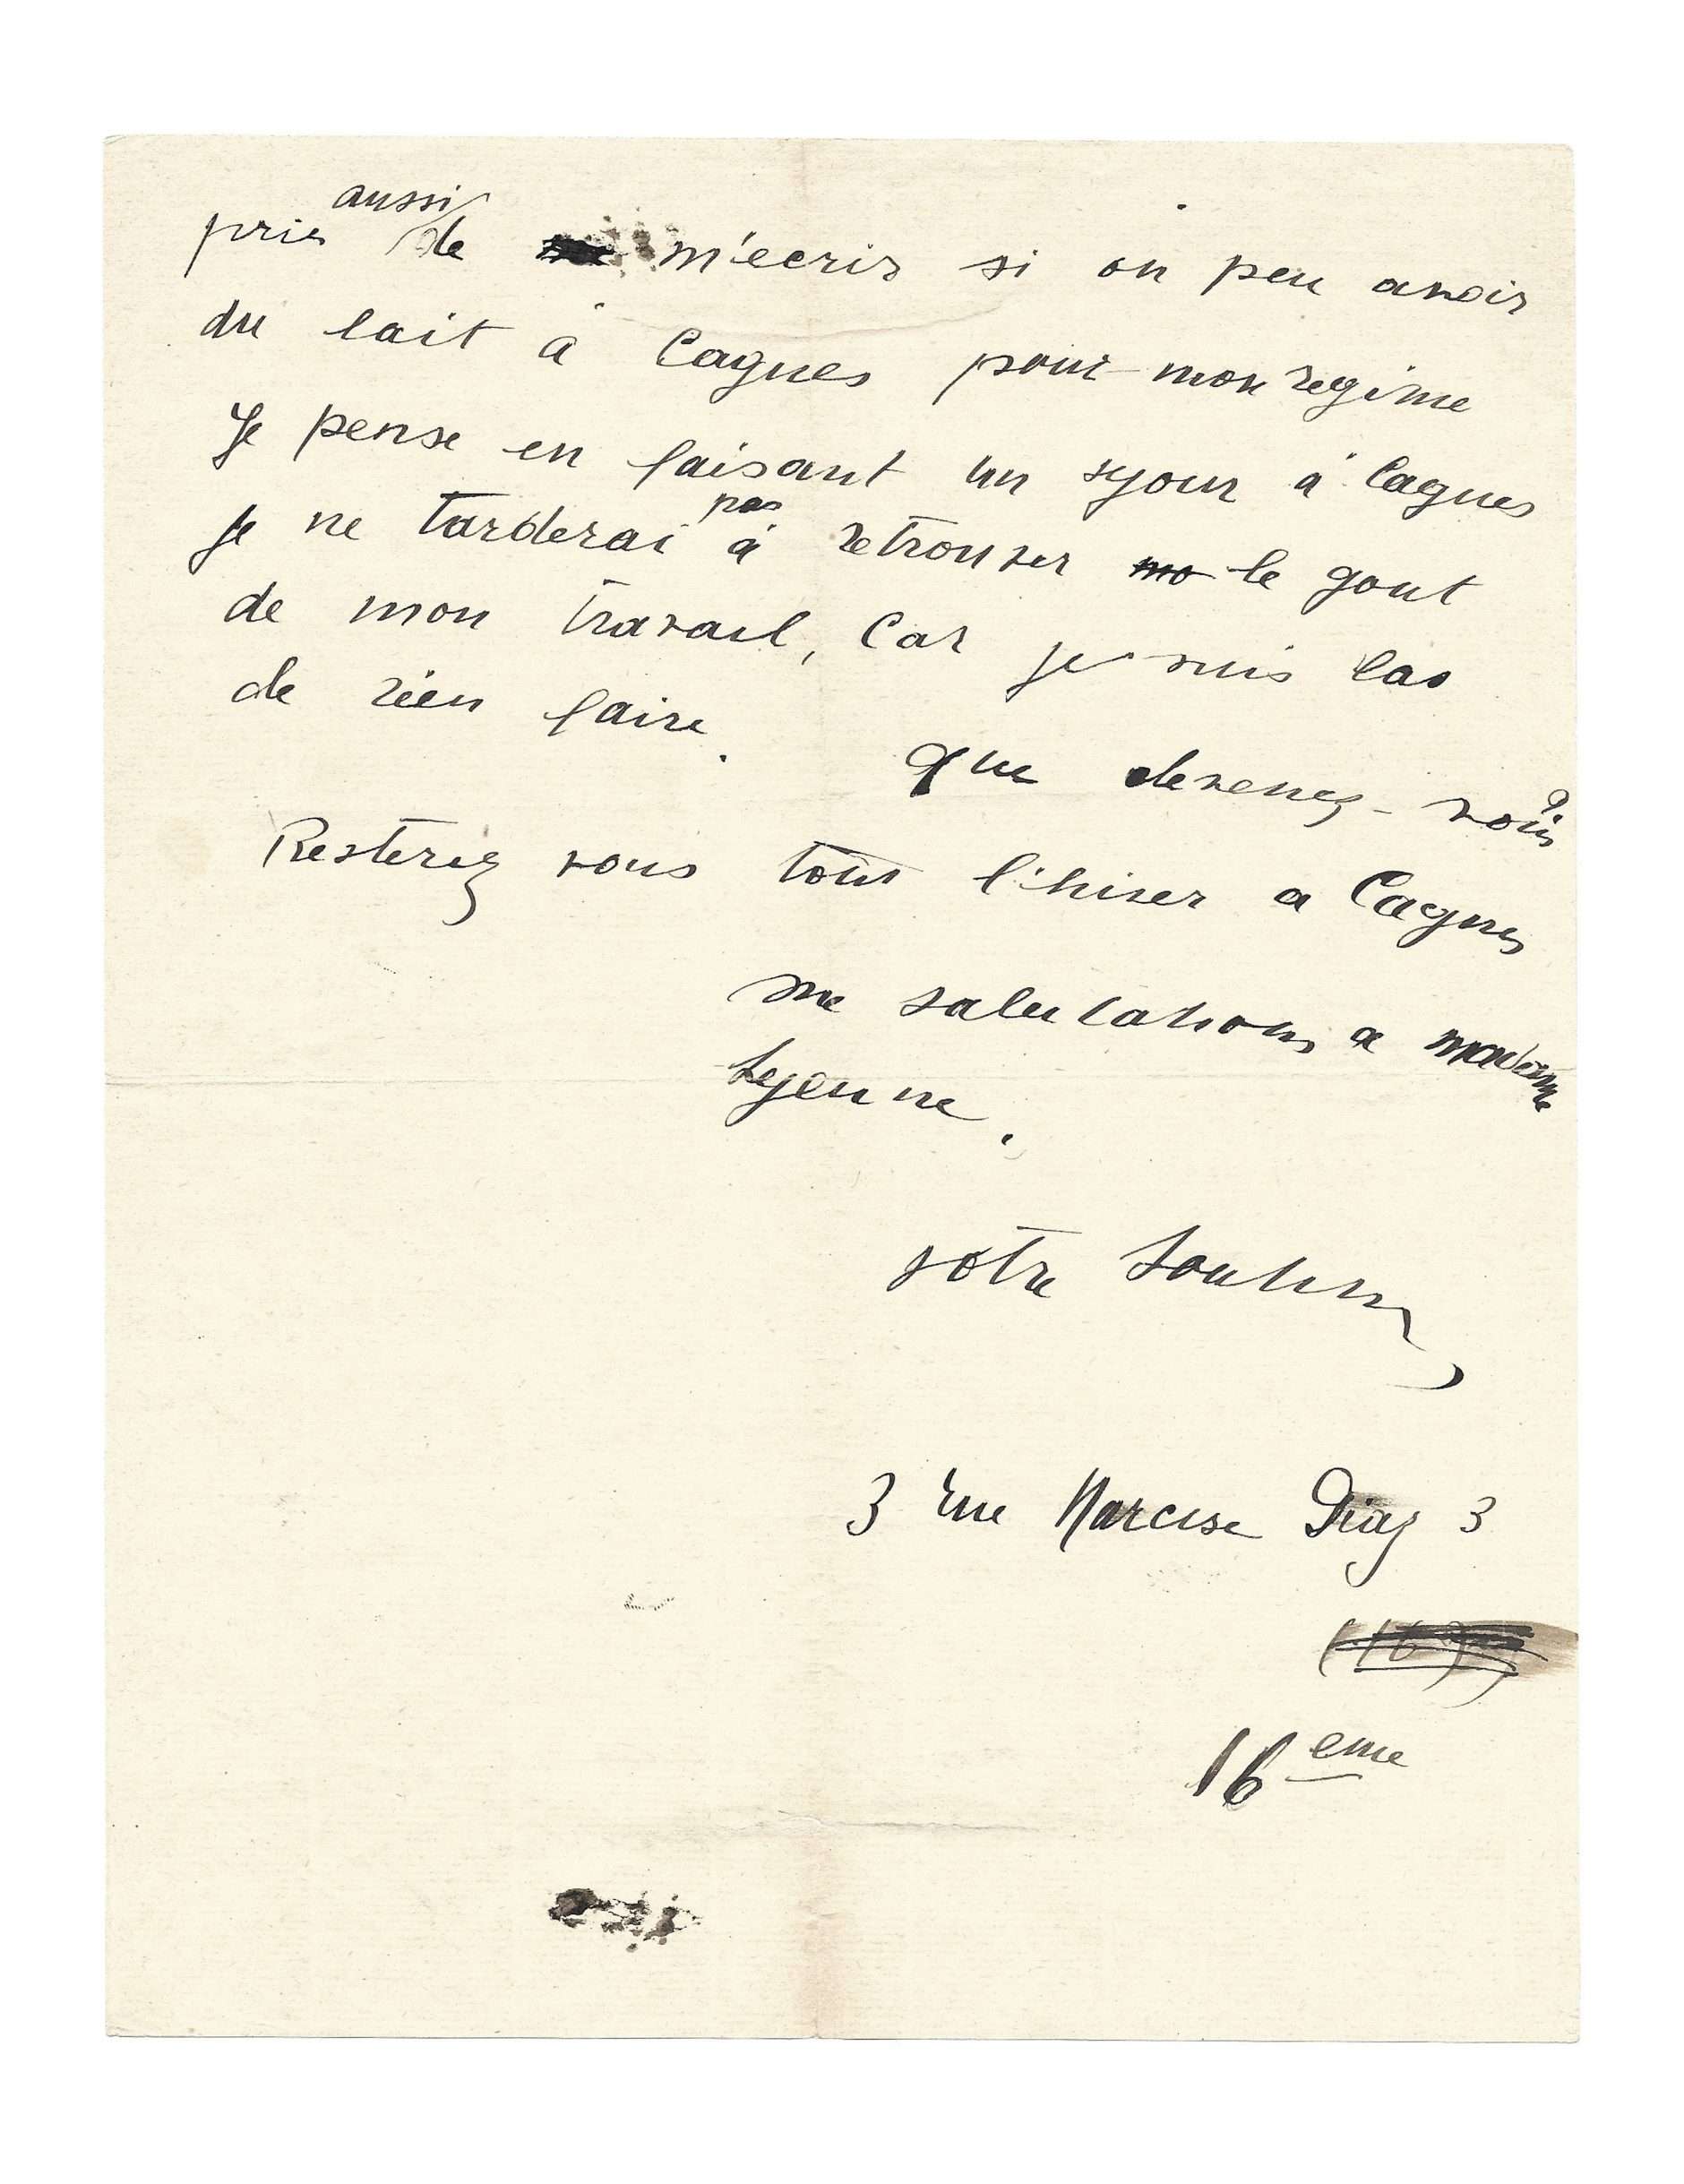 aussi
pries de m'ecrir si on peu avoir
du lait à Cagnes pour mon regime
Je pense en faisant un sejour à Cagnes
pas
je ne tarderai à retrouver mo le gout
de mon travail, Car je suis las
de rien faire.
que devenez-vous?
Resterez vous tout l'hiver a Cagnes
me salutations a madame
votre Soutine
3 rue Narcise Diaz 3
(16)
16 eme